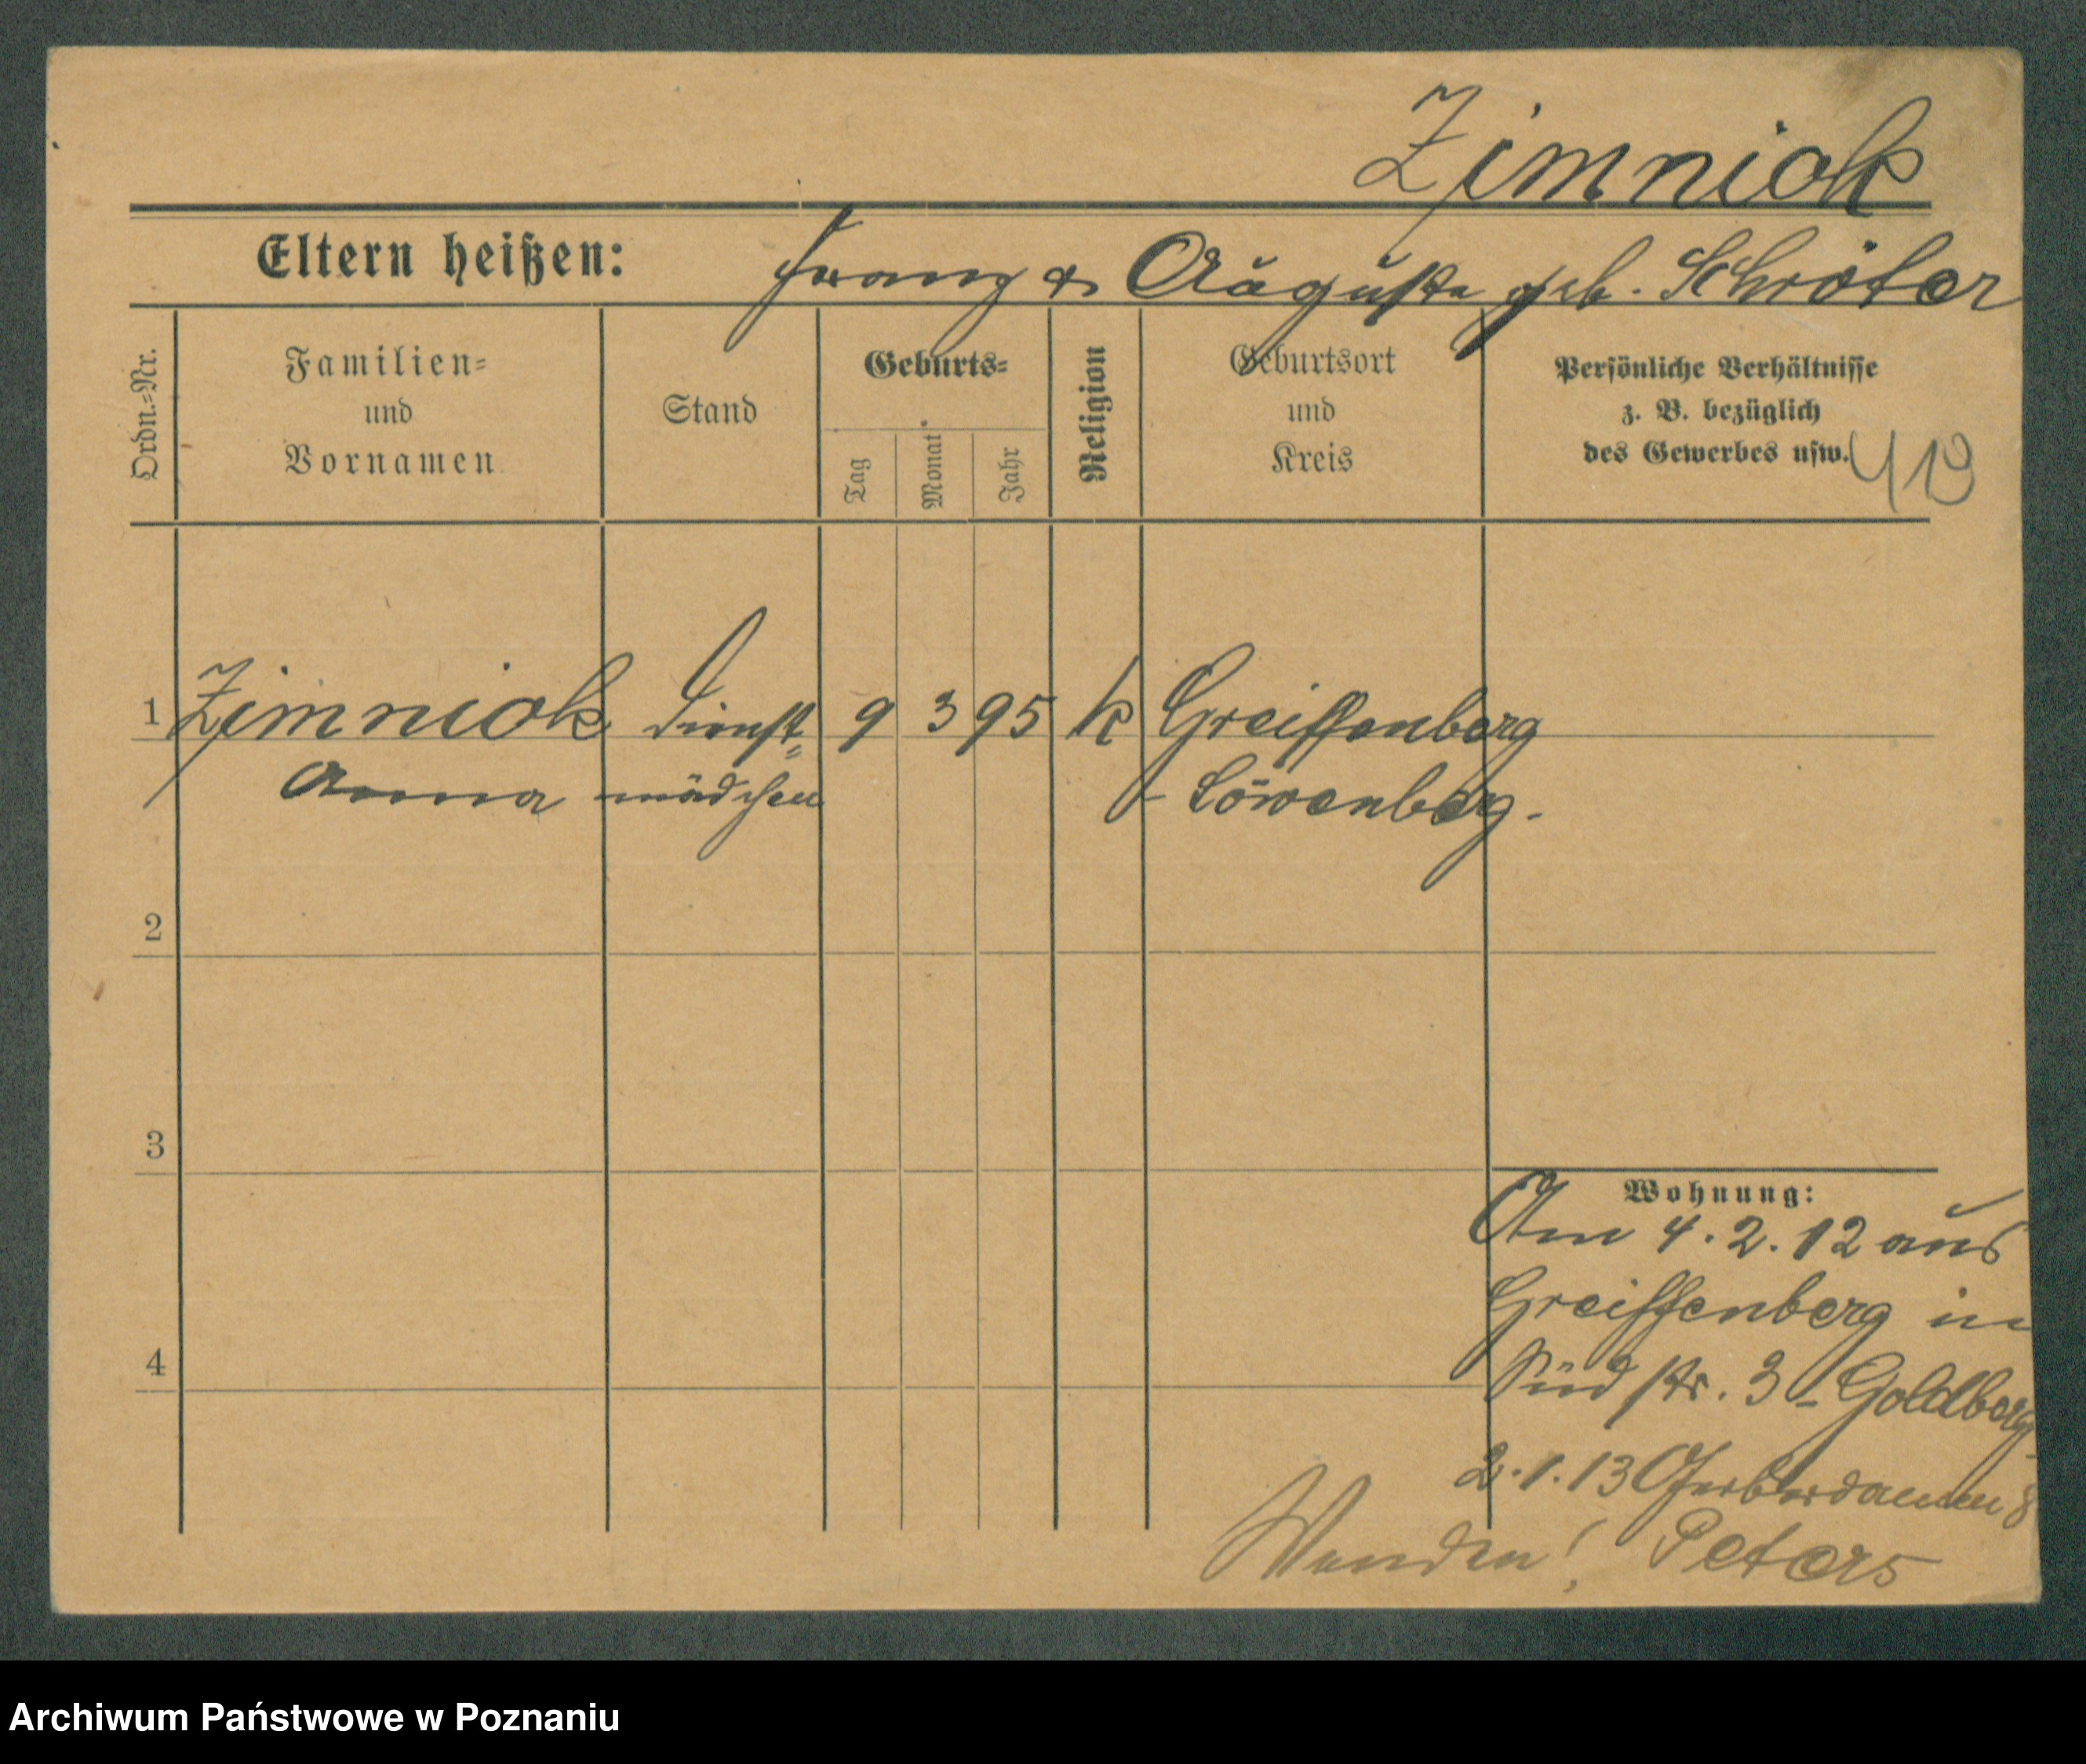 Zimniok
Eltern heißen: Franz & Auguste geb. Schröter
Ordn.-Nr.
Familien-
und
Vornamen
Stand
Geburts-
Tag
Monat
Jahr
Religion
Geburtsort
und
Kreis
Persönliche Verhältnisse
z. B. bezüglich
des Gewerbes usw.
413
1 Zimniok Dienst= 9 3 95 k Greiffenberg
Anna mädchen - Löwenberg.
2
3
4
Wohnung:
Am 4.2.12 aus
Greiffenberg in
Südstr. 3 - Goldberg
2.1.13 Gerberdamm 8
Wenden! Peters
Archiwum Państwowe w Poznaniu